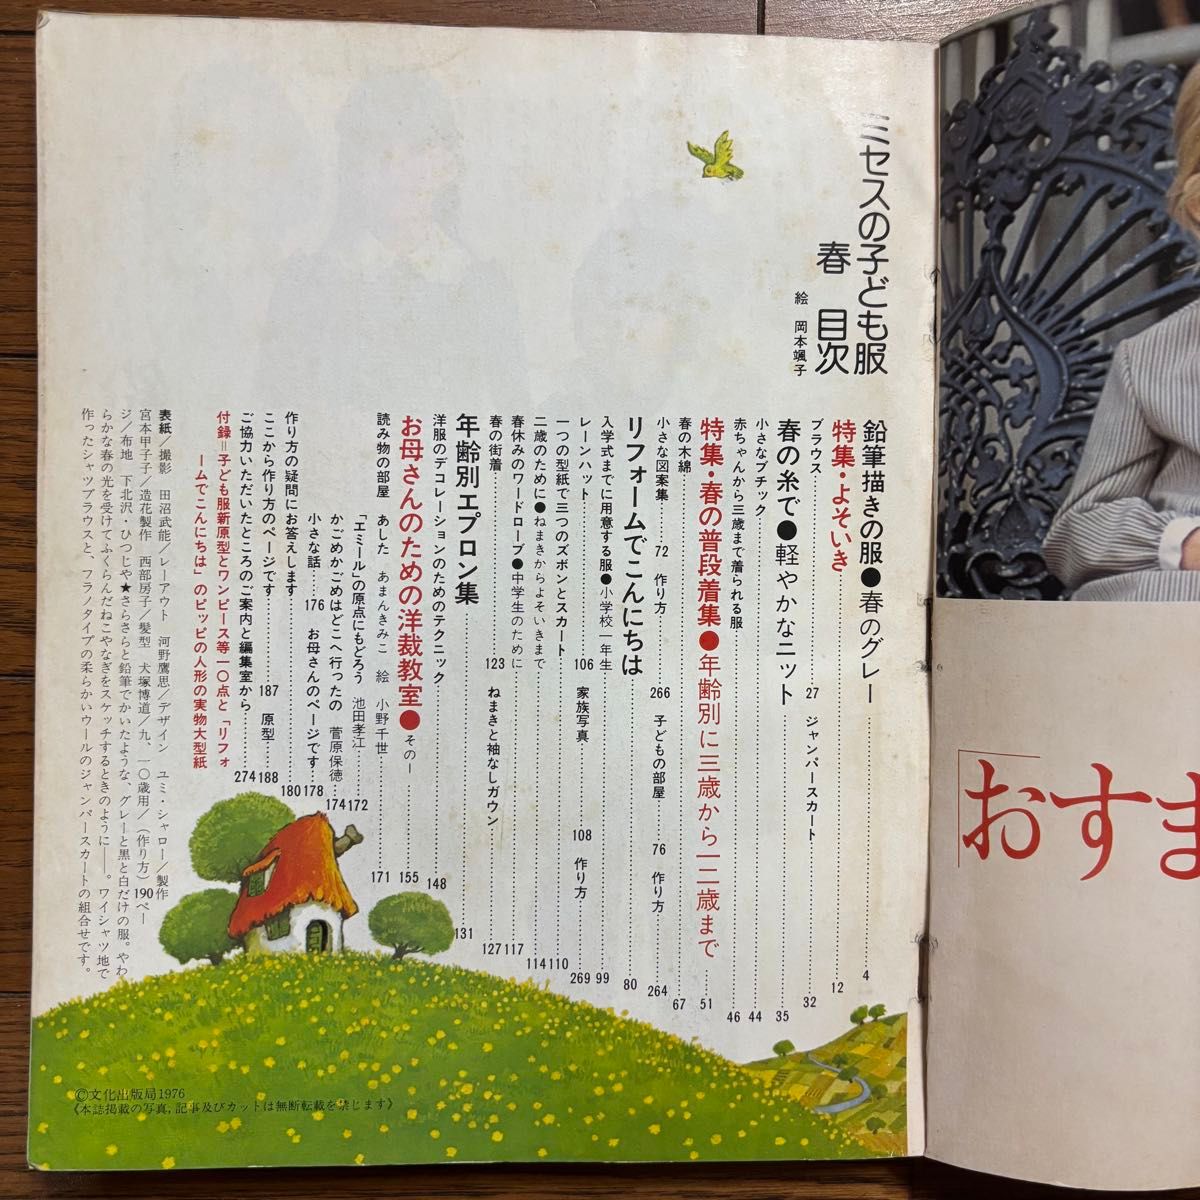 ミセスの子ども服
春 目次
絵 岡本颯子
鉛筆描きの服●春のグレー……4
特集・よそいき……12
ブラウス……27 ジャンパースカート……32
春の糸で●軽やかなニット……35
小さなブチック……44
赤ちゃんから三歳まで着られる服……46
特集・春の普段着集●年齢別に三歳から一二歳まで……51
春の木綿……67
小さな図案集……72 作り方……266 子どもの部屋……76 作り方……264
リフォームでこんにちは……80
入学式までに用意する服●小学校一年生……99
レーンハット……106 家族写真……108 作り方……269
一つの型紙で三つのズボンとスカート……110
二歳のために●ねまきからよそいきまで……114
春休みのワードローブ●中学生のために……117
春の街着……123 ねまきと袖なしガウン……127
年齢別エプロン集……131
洋服のデコレーションのためのテクニック……148
お母さんのための洋裁教室●その一……155
読み物の部屋 あした あまんきみこ 絵 小野千世……171
「エミール」の原点にもどろう 池田孝江……172
かごめかごめはどこへ行ったの 菅原保徳……174
小さな話……176 お母さんのページです……178
作り方の疑問にお答えします……180
ここから作り方のページです……187 原型……188
ご協力いただいたところのご案内と編集室から……274
付録＝子ども服新原型とワンピース等一〇点と「リフォ
ームでこんにちは」のピッピの人形の実物大型紙
表紙／撮影 田沼武能／レーアウト 河野鷹思／デザイン ユミ・シャロー／製作
宮本甲子子／造花製作 西部房子／髪型 犬塚博道／九、一〇歳用／（作り方）190ペー
ジ／布地 下北沢・ひつじや★さらさらと鉛筆でかいたような、グレーと黒と白だけの服。やわ
らかな春の光を受けてふくらんだねこやなぎをスケッチするときのように――。ワイシャツ地で
作ったシャツブラウスと、フラノタイプの柔らかいウールのジャンパースカートの組合せです。
©文化出版局1976
《本誌掲載の写真,記事及びカットは無断転載を禁じます》
「おすま